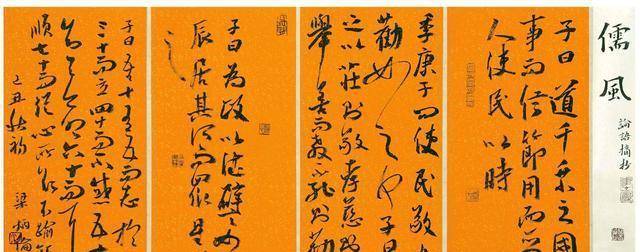 儒風
論語摘抄
子曰道千乘之國
事而信節用而愛
人使民以時
季康子問使民敬
勸如之何子曰
之以莊則敬孝慈
舉善而教不能則勸
子曰為政以德譬如
辰居其所而眾星
之
子曰吾十有五而志於
三十而立四十而不惑五十
而知天命六十而耳
順七十而從心所欲不踰矩
乙丑秋初
梁炳